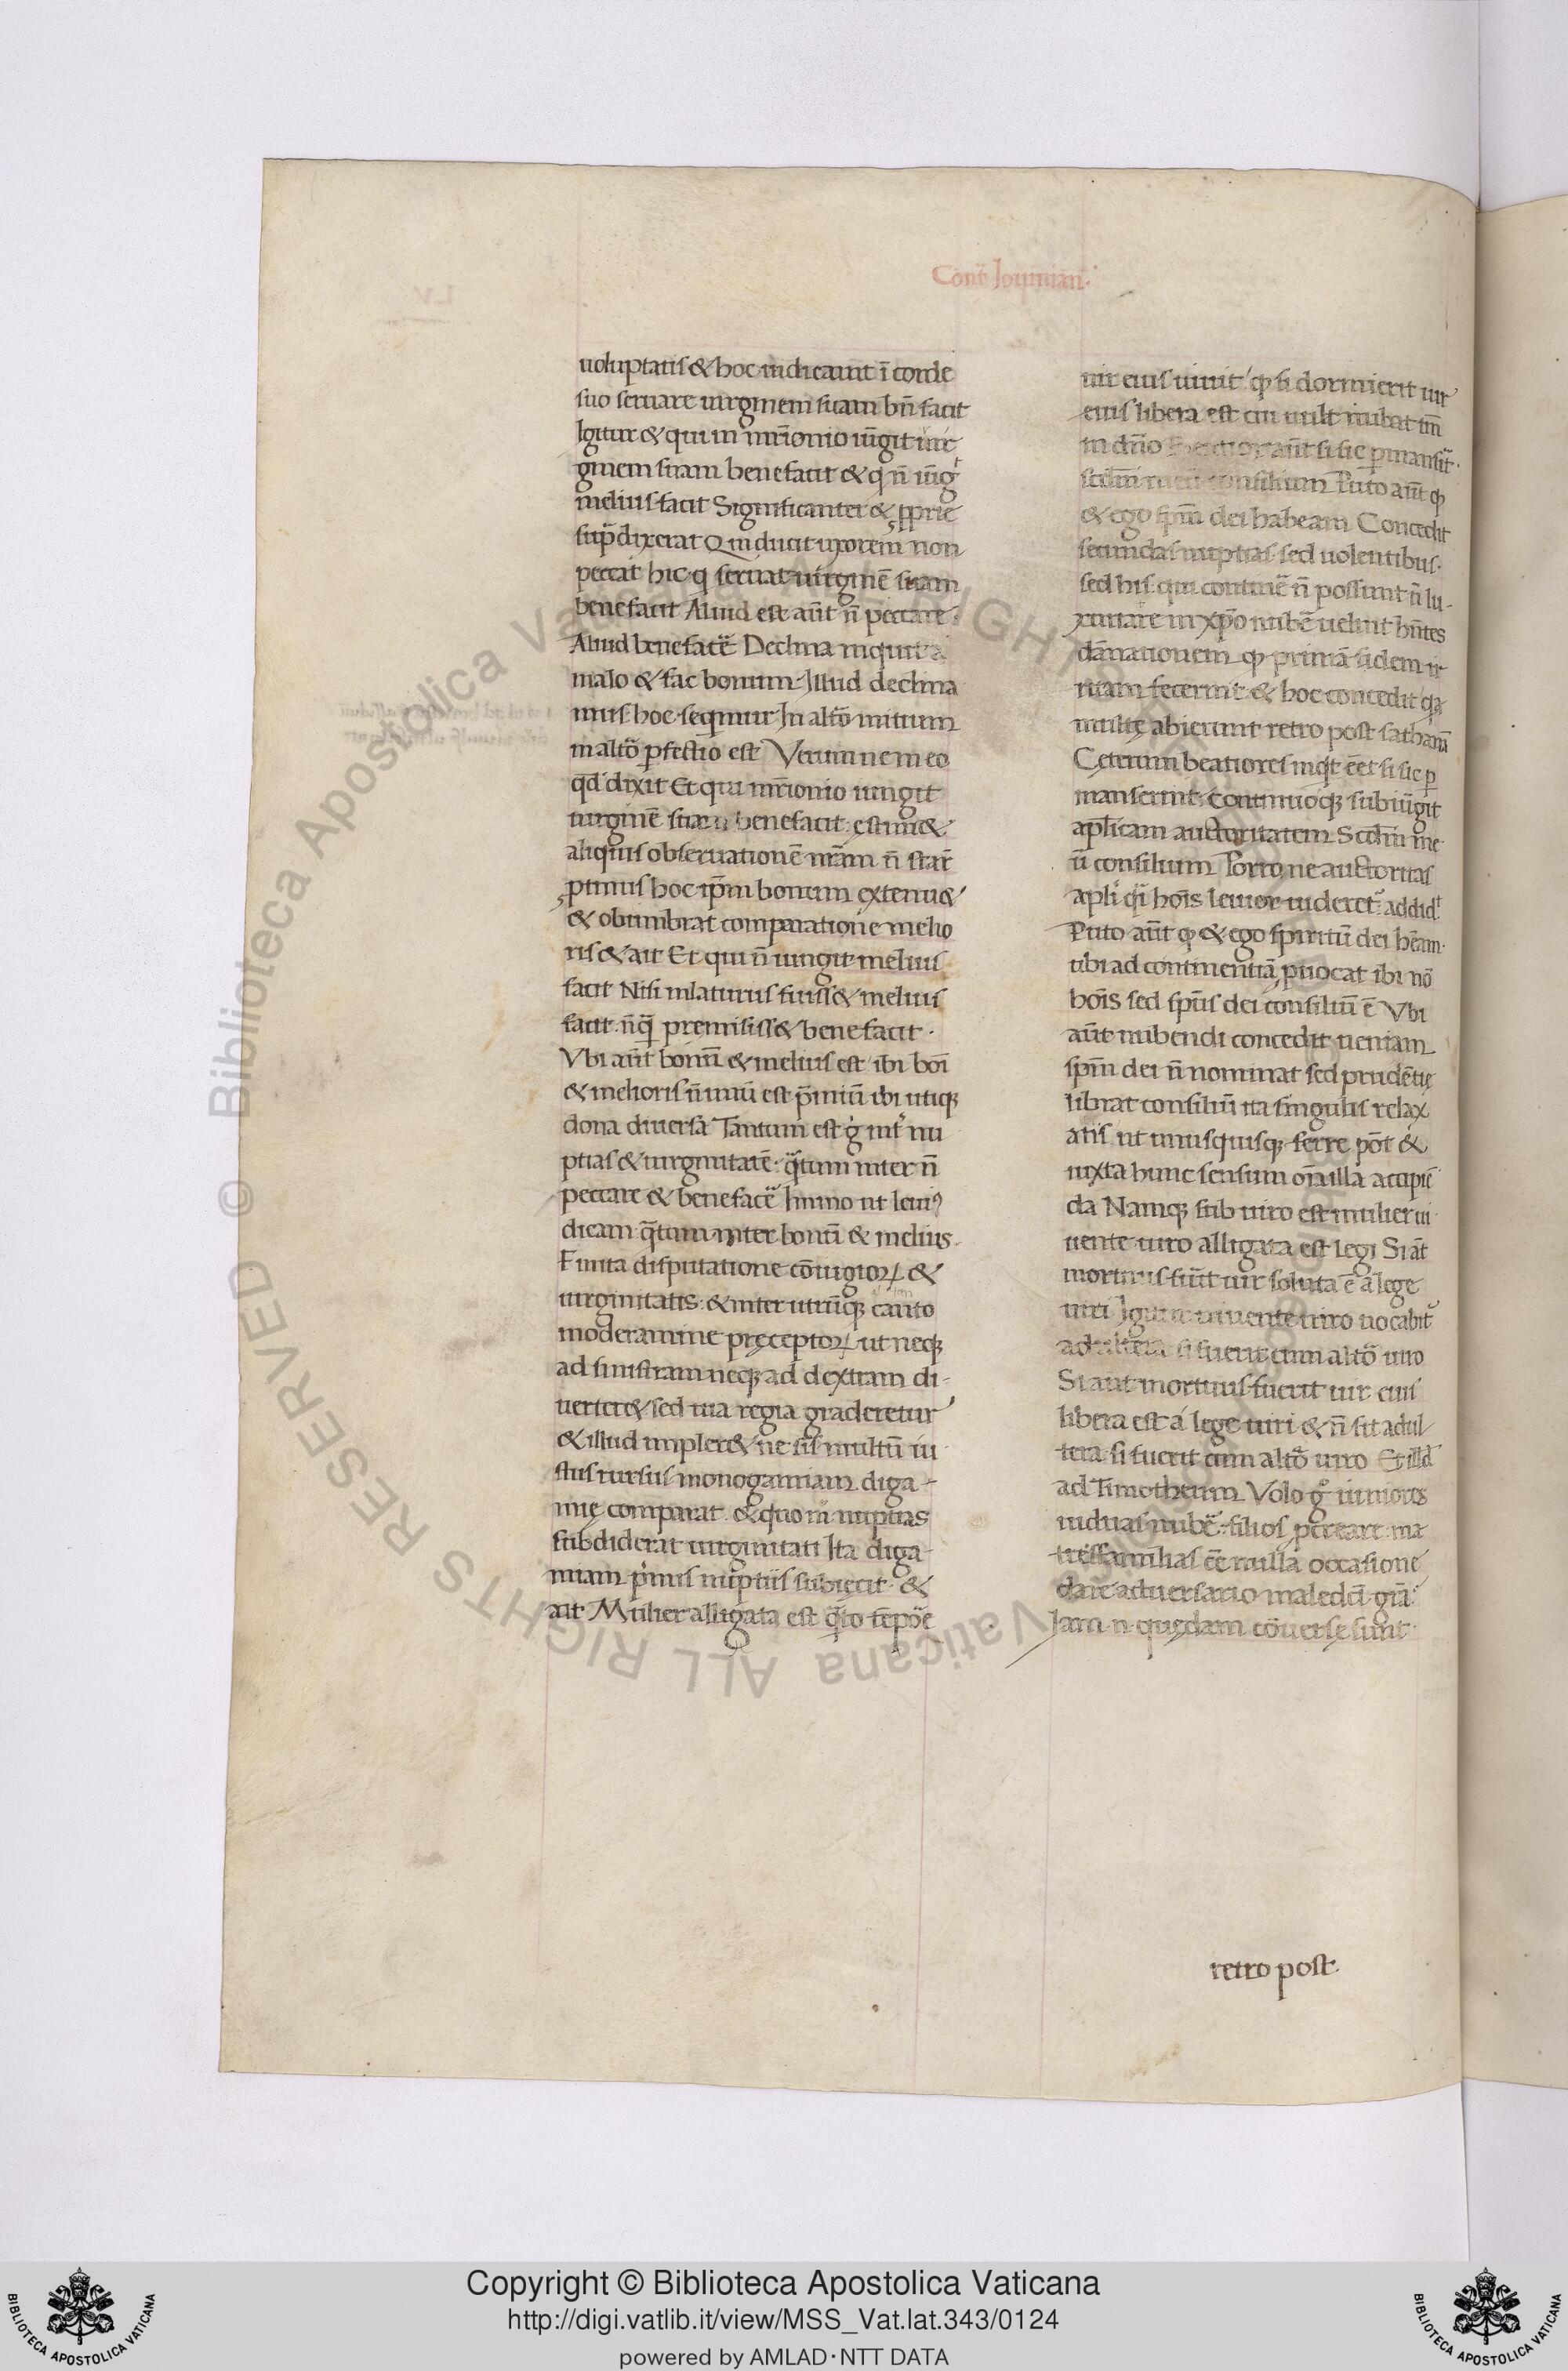 Cont̄ Iouinian̄.
uoluptatis & hoc iudicauit ī corde
suo seruare uirginem suam bn̄ facit
Igitur & qui in mr̄ionio iūgit uir
ginem suam bene facit & q n̄ iūgᵗ
melius facit Significanter & ꝓprie
sup̄dixerat Qui ducit uxorem non
peccat hic q seruat uirginē suam
bene facit Aliud est aūt n̄ peccare
Aliud bene facē Declina inquit a
malo & fac bonum. Illud declina
mus hoc sequimur In altō initium
in altō ꝑfectio est Verum ne in eo
qd̄ dixit Et qui mr̄ionio iungit
uirginē suam bene facit: estim&
aliquis obseruationē nr̄am n̄ star̄
ꝓtinus hoc ip̄m bonum extenu&
& obumbrat comparatione melio
ris & ait Et qui n̄ iungit melius
facit Nisi inlaturus fuiss& melius
facit. n̄q̄ premisiss& bene facit.
Vbi aūt bonū & melius est ibi boī
& melioris n̄ unū est p̄miū ibi utiqꝫ
dona diuersa Tantum est g̊ int̄ nu
ptias & uirginitatē. q̄tum inter n̄
peccare & bene facē Immo ut leuiꝰ
dicam q̄tum inter bonū & melius.
Finita disputatione cōiugioꝝ &
uirginitatis: & inter utrūqꝫ cauto
moderamine pręceptoꝝ ut neqꝫ
ad sinistram neqꝫ ad dextram di-
uerter& sed uia regia graderetur
& illud impler& ne sis multū iu
stus rursus monogamiam diga-
mię comparat. & quo m̄ nuptias
subdiderat uirginitati Ita diga-
miam primis nuptiis subiecit. &
ait Mulier alligata est q̄to tēpōe
uir eius uiuit ꝙ si dormierit uir
eius libera est cui uult nubat tm̄
in dn̄o Beatior aūt si sic ꝑmansit̄.
scdm̄ meū consilium Puto aūt ꝙ
& ego spm̄ dei habeam Concedit
secundas nuptias. sed uolentibus.
sed his qui continē n̄ possunt n̄ lu-
xuriare in xp̄o nubē uelint hn̄tes
dānationem ꝙ primā fidem ir
ritam fecerint & hoc concedit qa
multę abierunt retro post sathanā
Cęterum beatiores inqt ēēt si sic ꝑ
manserint. continuoqꝫ subiūgit
apl̄icam auctoritatem Scdm̄ me
ū consilium Porro ne auctoritas
apl̄i q̄i hoīs leuior uideret̄ addidᵗ
Puto aūt ꝙ & ego spiritū dei hēam.
ubi ad continentiā ꝓuocat ibi nō
hoīs sed sp̄us dei consiliū ē Vbi
aūt nubendi concedit ueniam
spm̄ dei n̄ nominat sed prudētię
librat consiliū ita singulis relax
atis ut unusquisqꝫ ferre pōt &
iuxta hunc sensum oīa illa accipiē
da Namqꝫ sub uiro est mulier ui
uente uiro alligata est legi Si āt
mortuus fūit uir soluta ē a lege
uiri Igitur uiuente uiro uocabit̄
adultera si fuerit cum altō uiro
Si aūt mortuus fuerit uir eius
libera est á lege uiri & n̄ sit adul
tera si fuerit cum altō uiro Et illd̄
ad Timotheum Volo g̊ iuniores
uiduas nubē. filios ꝓcreare ma
tresfamilias ēē nullā occasione
dare aduersario maledcī grā.
Iam n̄ quędam cōuersę sunt
retro post.
Copyright © Biblioteca Apostolica Vaticana
http://digi.vatlib.it/view/MSS_Vat.lat.343/0124
powered by AMLAD·NTT DATA
BIBLIOTECA APOSTOLICA VATICANA
BIBLIOTECA APOSTOLICA VATICANA
© Biblioteca Apostolica Vaticana ALL RIGHTS RESERVED